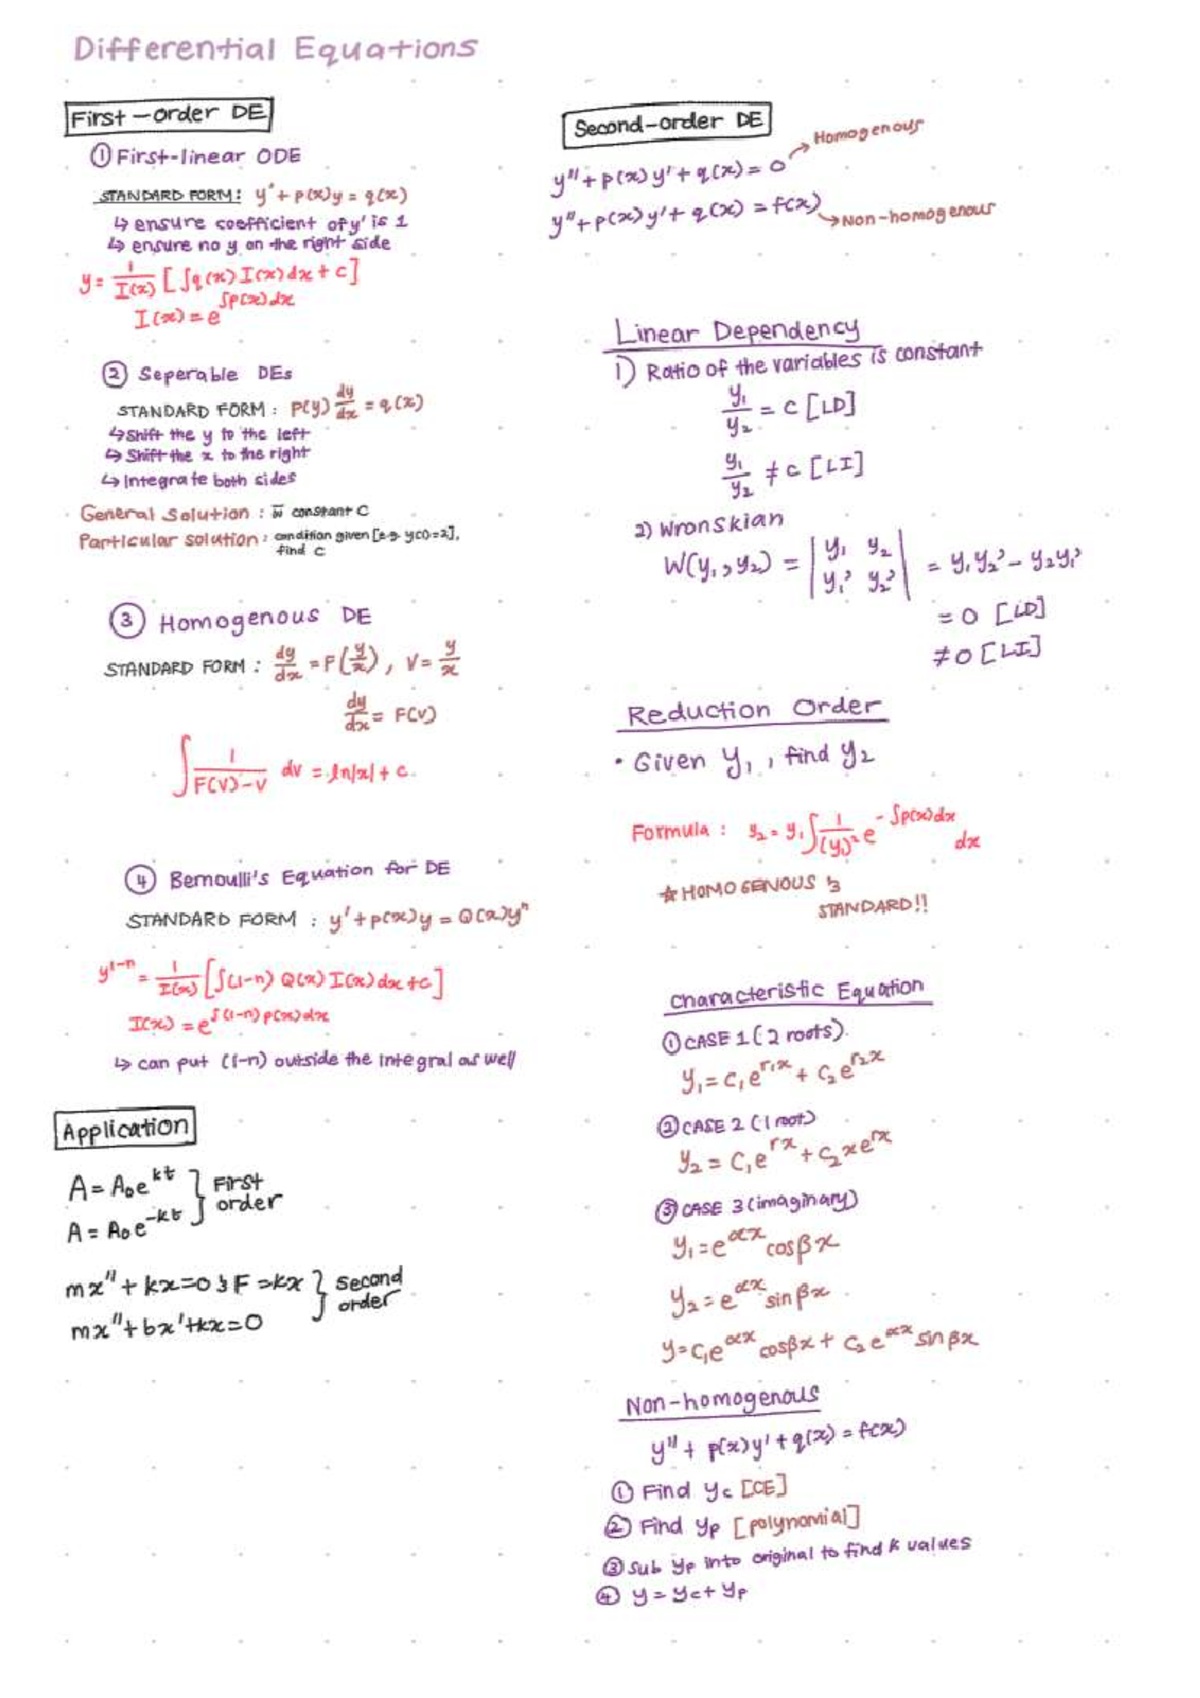 Differential Equations
First-order DE
① First-linear ODE
STANDARD FORM: y' + p(x)y = q(x)
↳ ensure coefficient of y' is 1
↳ ensure no y on the right side
y = 1/I(x) [∫q(x) I(x) dx + c]
I(x) = e^∫p(x)dx
② Seperable DEs
STANDARD FORM: P(y) dy/dx = q(x)
↳ Shift the y to the left
↳ Shift the x to the right
↳ Integrate both sides
General Solution: w̅ constant C
Particular solution: condition given [e.g. y(0)=2],
find C
③ Homogenous DE
STANDARD FORM: dy/dx = F(y/x), V = y/x
dy/dx = F(V)
∫ 1/(F(V)-V) dv = ln|x| + c
④ Bernoulli's Equation for DE
STANDARD FORM: y' + p(x)y = Q(x)y^n
y^(1-n) = 1/I(x) [∫(1-n) Q(x) I(x) dx + c]
I(x) = e^∫(1-n)p(x)dx
↳ can put (1-n) outside the integral as well
Application
A = A₀e^kt } First
A = A₀e^-kt } order
mx" + kx = 0 & F = kx } second
mx" + bx' + kx = 0 } order
Second-order DE
y" + p(x)y' + q(x) = 0 → Homogenous
y" + p(x)y' + q(x) = f(x) → Non-homogenous
Linear Dependency
1) Ratio of the variables is constant
y₁/y₂ = C [LD]
y₁/y₂ ≠ C [LI]
2) Wronskian
W(y₁, y₂) = | y₁ y₂ | = y₁y₂' - y₂y₁'
| y₁' y₂' |
= 0 [LD]
≠ 0 [LI]
Reduction Order
• Given y₁, find y₂
Formula: y₂ = y₁ ∫ 1/(y₁)² e^-∫p(x)dx dx
☆ HOMOGENOUS &
STANDARD!!
Characteristic Equation
① CASE 1 (2 roots)
y₁ = c₁e^r₁x + c₂e^r₂x
② CASE 2 (1 root)
y₂ = c₁e^rx + c₂xe^rx
③ CASE 3 (imaginary)
y₁ = e^αx cosβx
y₂ = e^αx sinβx
y = c₁e^αx cosβx + c₂e^αx sinβx
Non-homogenous
y" + p(x)y' + q(x) = f(x)
① Find yc [CE]
② Find yp [polynomial]
③ Sub yp into original to find k values
④ y = yc + yp